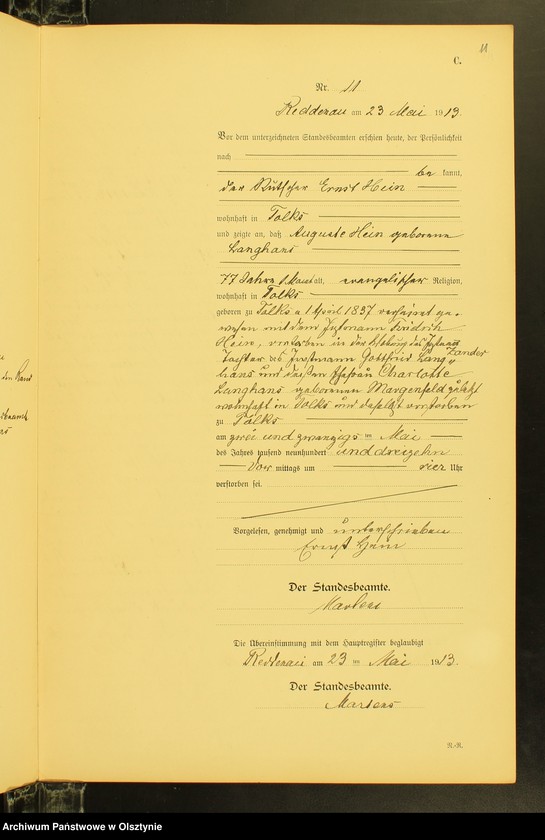 11
C.
Nr. 11
Reddenau am 23 Mai 1913.
Vor dem unterzeichneten Standesbeamten erschien heute, der Persönlichkeit
nach
be kannt,
der Kutscher Ernst Hein
wohnhaft in Tolks
und zeigte an, daß Auguste Hein geborene
Langhans
77 Jahre 1 Monat alt, evangelischer Religion,
wohnhaft in Tolks
geboren zu Tolks
mit dem Instmann Friedrich
Hein, verstorben in
Zander
Tochter des Instmann Gottfried Lang
hans und dessen Ehefrau Charlotte
Langhans geborenen Margenfeld zuletzt
wohnhaft in Tolks und daselbst verstorben
zu Tolks
am zwei und zwanzigsten Mai
des Jahres tausend neunhundert und dreizehn
Vor mittags um vier Uhr
verstorben sei.
Vorgelesen, genehmigt und unterschrieben
Ernst Hein
Der Standesbeamte.
Martens
Die Übereinstimmung mit dem Hauptregister beglaubigt
Reddenau am 23 ten Mai 1913.
Der Standesbeamte.
Martens
R.-R.
Archiwum Państwowe w Olsztynie